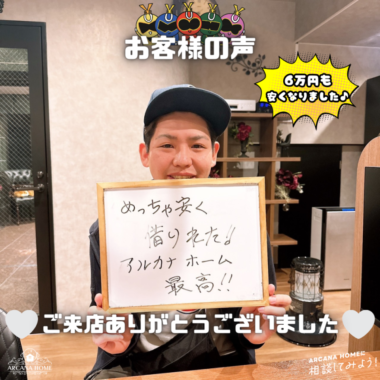 お客様の声
6万円も
安くなりました♪
めっちゃ安く
借りれた!!
アルカナホーム
最高!!
ご来店ありがとうございました
ARCANA HOME
ARCANA HOMEに
相談してみよう!